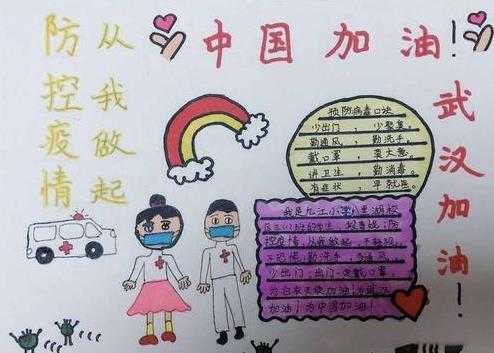 中国加油!
防控疫情
从我做起
武汉加油!
预防病毒口诀
少出门，少聚集。
勤通风，勤洗手。
戴口罩，莫大意。
讲卫生，勤消毒。
有症状，早就医。
我是九江小学八里湖校
防
控疫情,从我做起,不
不恐慌,勤洗手,多通风
少出门,出门一定戴口罩
为白衣天使加油,为武汉
加油!为中国加油!